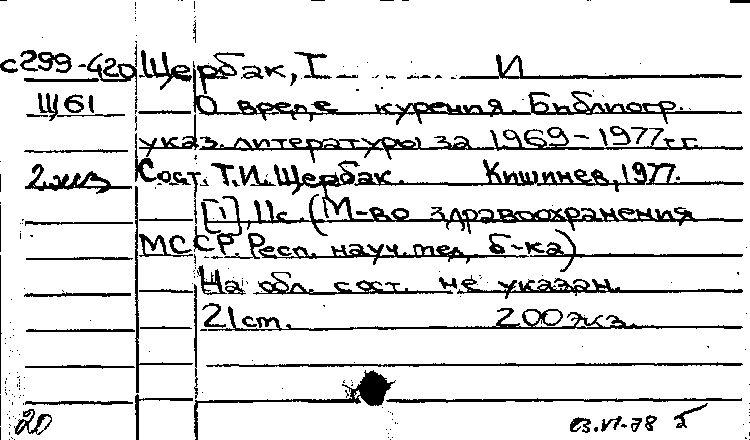 с299-420 Щербак, Т И
Щ61 О вреде курения. Библиогр.
указ. литературы за 1969-1977гг.
2экз Сост. Т.И. Щербак. Кишинев, 1977.
[1], 11с. (М-во здравоохранения
МССР. Респ. науч. мед. б-ка)
На обл. сост. не указан.
21см. 200экз.
20 03.VI-78